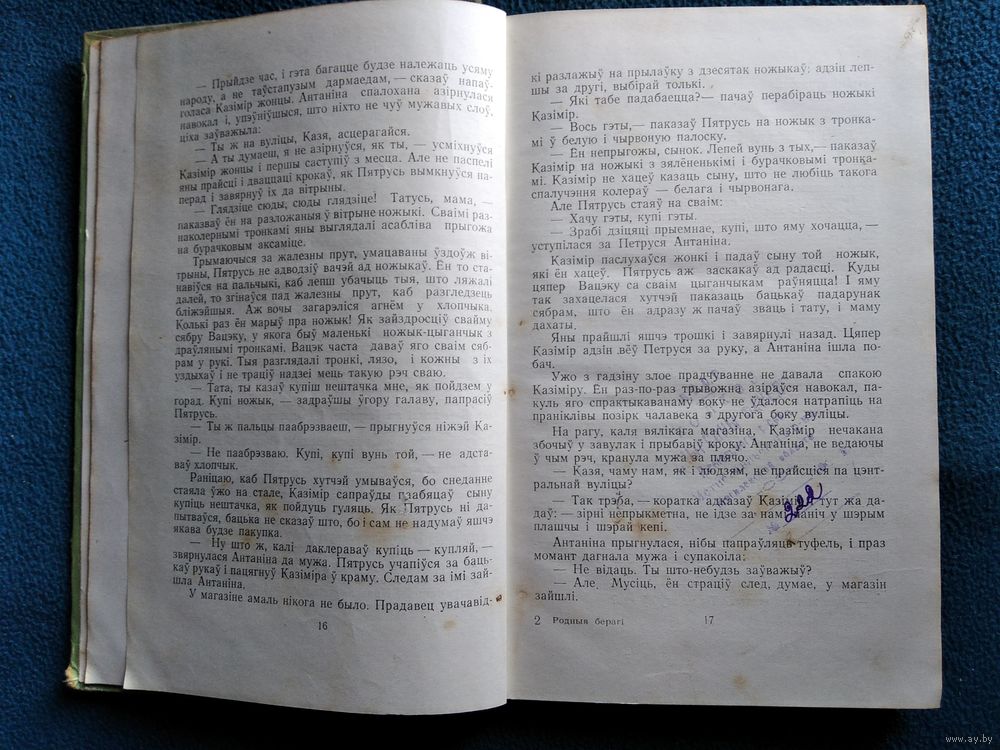 — Прыйдзе час, і гэта багацце будзе належаць усяму
народу, а не таўстапузым дармаедам, — сказаў напаў-
голаса Казімір жонцы. Антаніна спалохана азірнулася
навокал і, упэўніўшыся, што ніхто не чуў мужавых слоў,
ціха заўважыла:
— Ты ж на вуліцы, Казя, асцерагайся.
— А ты думаеш, я не азірнуўся, як ты, — усміхнуўся
Казімір жонцы і першы саступіў з месца. Але не паспелі
яны прайсці і дваццаці крокаў, як Пятрусь вымкнуўся на-
перад і завярнуў іх да вітрыны.
— Глядзіце сюды, сюды глядзіце! Татусь, мама, —
паказваў ён на разложаныя ў вітрыне ножыкі. Сваімі раз-
наколернымі тронкамі яны выглядалі асабліва прыгожа
на бурачковым аксаміце.
Трымаючыся за жалезны прут, умацаваны ўздоўж ві-
трыны, Пятрусь не адводзіў вачэй ад ножыкаў. Ён то ста-
навіўся на пальчыкі, каб лепш убачыць тыя, што ляжалі
далей, то згінаўся пад жалезны прут, каб разгледзець
бліжэйшыя. Аж вочы загарэліся агнём у хлопчыка.
Колькі раз ён марыў пра ножык! Як зайздросціў свайму
сябру Вацэку, у якога быў маленькі ножык-цыганчык з
драўлянымі тронкамі. Вацэк часта даваў яго сваім сяб-
рам у рукі. Тыя разглядалі тронкі, лязо, і кожны з іх
уздыхаў і не траціў надзеі мець такую рэч сваю.
— Тата, ты казаў купіш нештачка мне, як пойдзем у
горад. Купі ножык, — задраўшы ўгору галаву, папрасіў
Пятрусь.
— Ты ж пальцы паабрэзваеш, — прыгнуўся ніжэй Ка-
зімір.
— Не паабрэзваю. Купі, купі вунь той, — не адста-
ваў хлопчык.
Раніцаю, каб Пятрусь хутчэй умываўся, бо снеданне
стаяла ўжо на стале, Казімір сапраўды паабяцаў сыну
купіць нештачка, як пойдуць гуляць. Як Пятрусь ні да-
пытваўся, бацька не сказаў што, бо і сам не надумаў яшчэ
якава будзе пакупка.
— Ну што ж, калі даклераваў купіць — купляй, —
звярнулася Антаніна да мужа. Пятрусь учапіўся за баць-
каў рукаў і пацягнуў Казіміра ў краму. Следам за імі зай-
шла Антаніна.
У магазіне амаль нікога не было. Прадавец увачавід-
16
кі разлажыў на прылаўку з дзесятак ножыкаў: адзін леп-
шы за другі, выбірай толькі.
— Які табе падабаецца?— пачаў перабіраць ножыкі
Казімір.
— Вось гэты,— паказаў Пятрусь на ножык з тронка-
мі ў белую і чырвоную палоску.
— Ён непрыгожы, сынок. Лепей вунь з тых,— паказаў
Казімір на ножыкі з зялёненькімі і бурачковымі тронка-
мі. Казімір не хацеў казаць сыну, што не любіць такога
спалучэння колераў — белага і чырвонага.
Але Пятрусь стаяў на сваім:
— Хачу гэты, купі гэты.
— Зрабі дзіцяці прыемнае, купі, што яму хочацца, —
уступілася за Петруся Антаніна.
Казімір паслухаўся жонкі і падаў сыну той ножык,
які ён хацеў. Пятрусь аж заскакаў ад радасці. Куды
цяпер Вацэку са сваім цыганчыкам раўняцца! І яму
так захацелася хутчэй паказаць бацькаў падарунак
сябрам, што ён адразу ж пачаў зваць і тату, і маму
дахаты.
Яны прайшлі яшчэ трошкі і завярнулі назад. Цяпер
Казімір адзін вёў Петруся за руку, а Антаніна ішла по-
бач.
Ужо з гадзіну злое прадчуванне не давала спакою
Казіміру. Ён раз-по-раз трывожна азіраўся навокал, па-
куль яго спрактыкаванаму воку не ўдалося натрапіць на
праніклівы позірк чалавека з другога боку вуліцы.
На рагу, каля вялікага магазіна, Казімір нечакана
збочыў у завулак і прыбавіў кроку. Антаніна, не ведаючы
ў чым рэч, кранула мужа за плячо.
— Казя, чаму нам, як і людзям, не прайсціся па цэнт-
ральнай вуліцы?
— Так трэба, — коратка адказаў Казімір і тут жа да-
даў: — зірні непрыкметна, не ідзе за намі паніч у шэрым
плашчы і шэрай кепі.
Антаніна прыгнулася, нібы папраўляць туфель, і праз
момант дагнала мужа і супакоіла:
— Не відаць. Ты што-небудзь заўважыў?
— Але. Мусіць, ён страціў след, думае, у магазін
зайшлі.
2 Родныя берагі 17
№ 222
www.ay.by